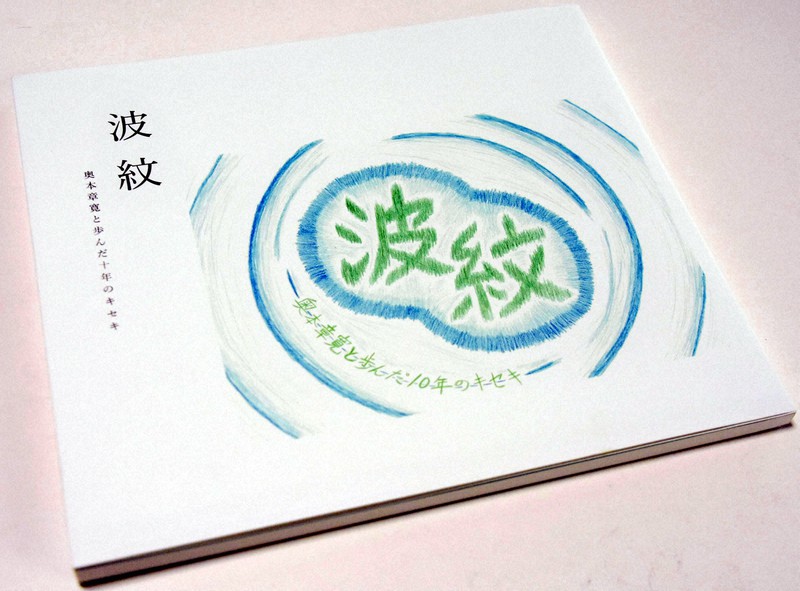 波紋
奥本章寛と歩んだ十年のキセキ
波紋
奥本章寛と歩んだ10年のキセキ